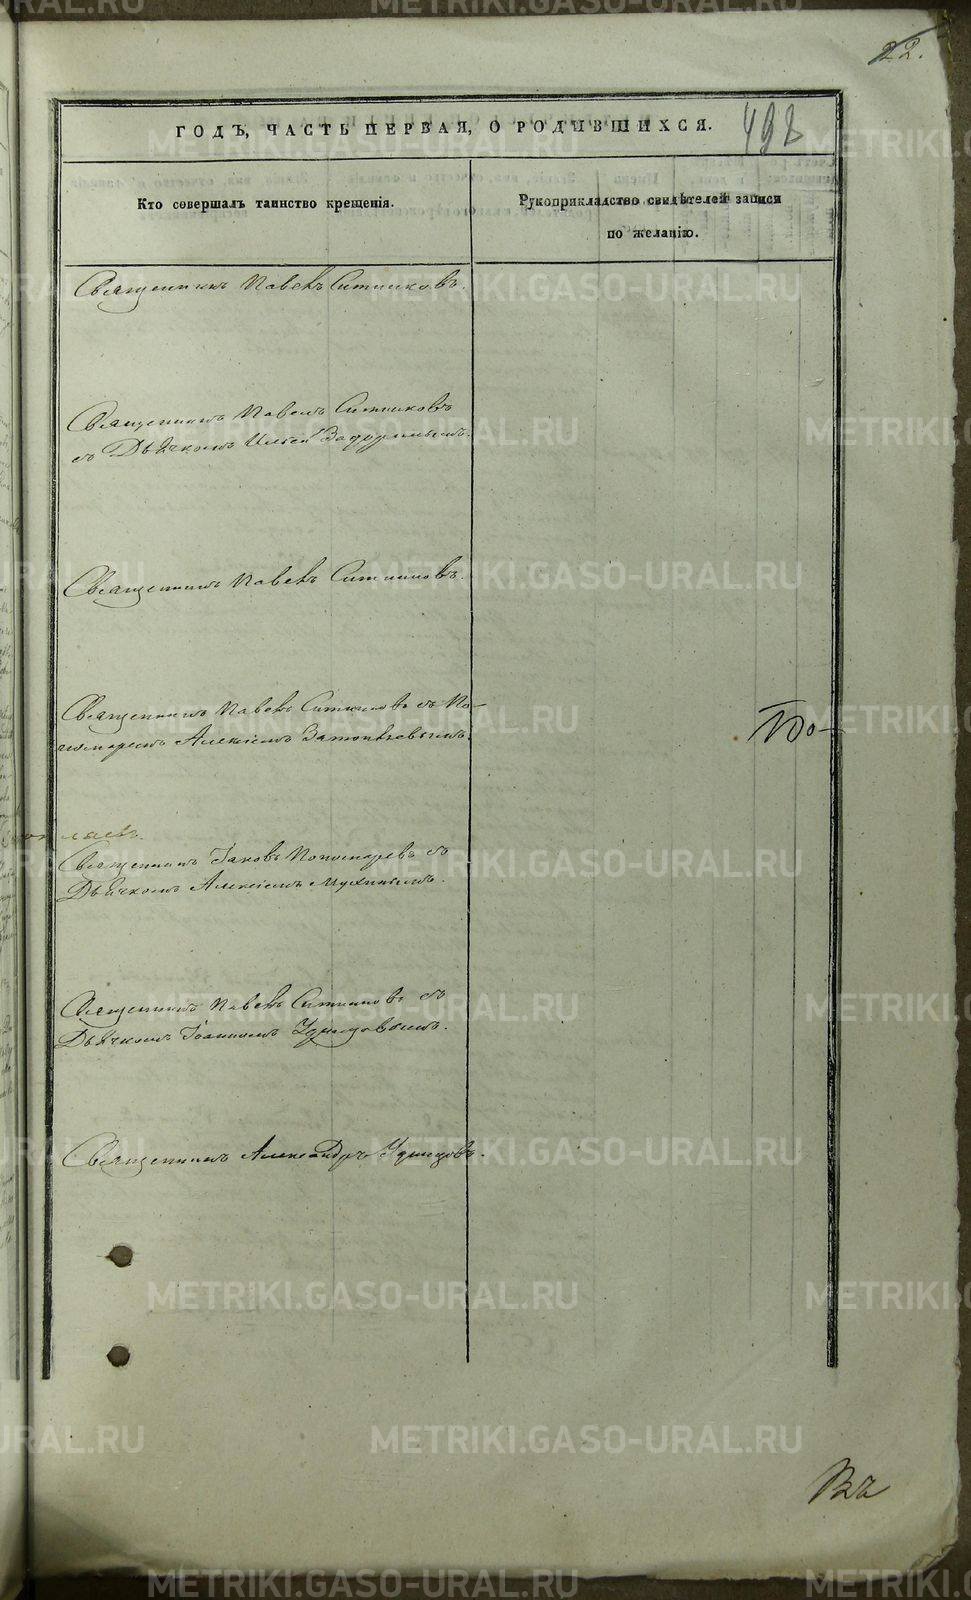 22.
ГОДЪ, ЧАСТЬ ПЕРВАЯ, О РОДИВШИХСЯ.
498
Кто совершалъ таинство крещенія.
Рукоприкладство свидѣтелей записи
по желанію.
Священникъ Павелъ Ситниковъ.
Священникъ Павелъ Ситниковъ
съ Дьячкомъ Ильей
Священникъ Павелъ Ситниковъ.
Священникъ Павелъ Ситниковъ съ По-
номаремъ Алексіемъ
Священникъ Іаковъ Пономаревъ съ
Дьячкомъ Алексіемъ Мухинымъ.
Священникъ Павелъ Ситниковъ съ
Дьячкомъ Іоанномъ Удинцовымъ.
Священникъ Александръ Удинцовъ.
METRIKI.GASO-URAL.RU